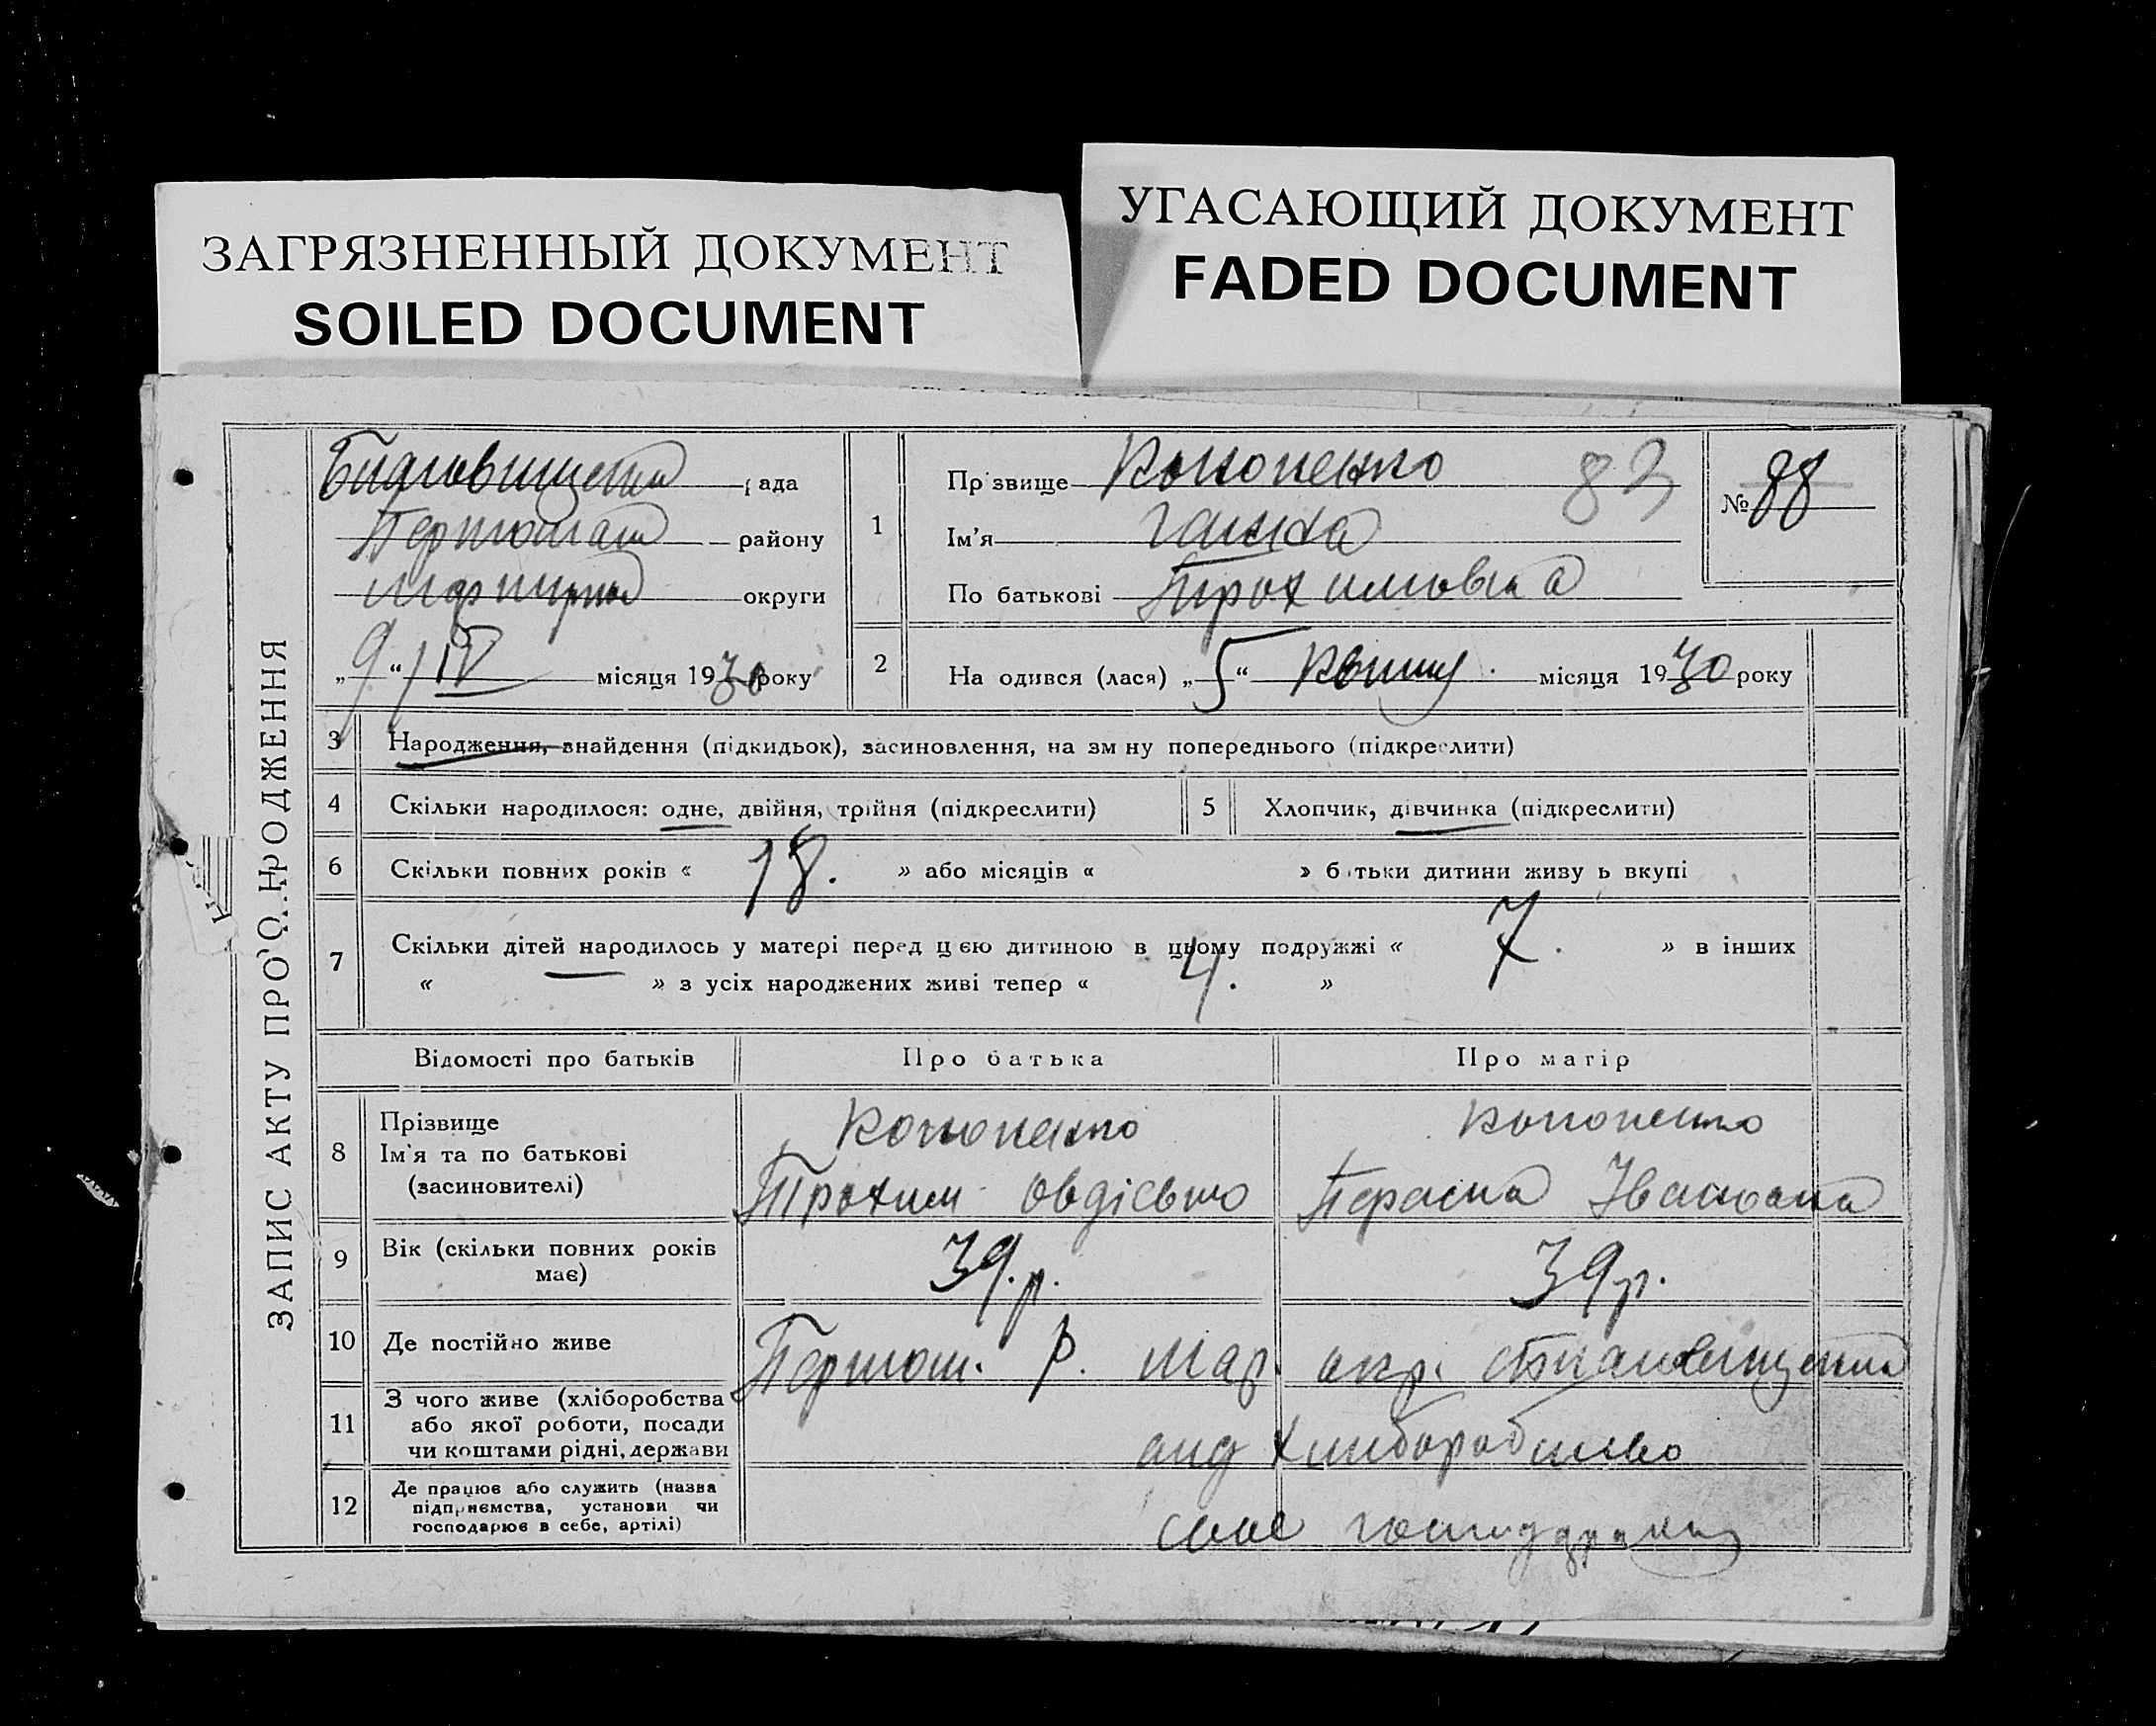 ЗАГРЯЗНЕННЫЙ ДОКУМЕНТ
SOILED DOCUMENT
УГАСАЮЩИЙ ДОКУМЕНТ
FADED DOCUMENT
ЗАПИС АКТУ ПРО НРОДЖЕННЯ
ада
району
округи
„9“ IV місяця 1930 року
1
Пр звище Кононенко 83
Ім'я Ганна
По батькові Трохимовна
№ 88
2 На одився (лася) „5“ Квітня місяця 1930 року
3 Народження, знайдення (підкидьок), засиновлення, на зм ну попереднього (підкреслити)
4 Скільки народилося: одне, двійня, трійня (підкреслити) 5 Хлопчик, дівчинка (підкреслити)
6 Скільки повних років « 18. » або місяців « » б тьки дитини живу ь вкупі
7 Скільки дітей народилось у матері перед ц єю дитиною в цьому подружжі « 7. » в інших
« — » з усіх народжених живі тепер « 4. »
Відомості про батьків Про батька Про матір
8 Прізвище Кононенко Кононенко
Ім'я та по батькові
(засинoвителі) Трохим Овдієвич Параска Івановна
9 Вік (скільки повних років
має) 39.р. 39р.
10 Де постійно живе р. Мар. окр.
11 З чого живе (хліборобства
або якої роботи, посади
чи коштами рідні, держави хліборобство
12 Де працює або служить (назва
підпрнємства, установи чи
господарює в себе, артілі) своє